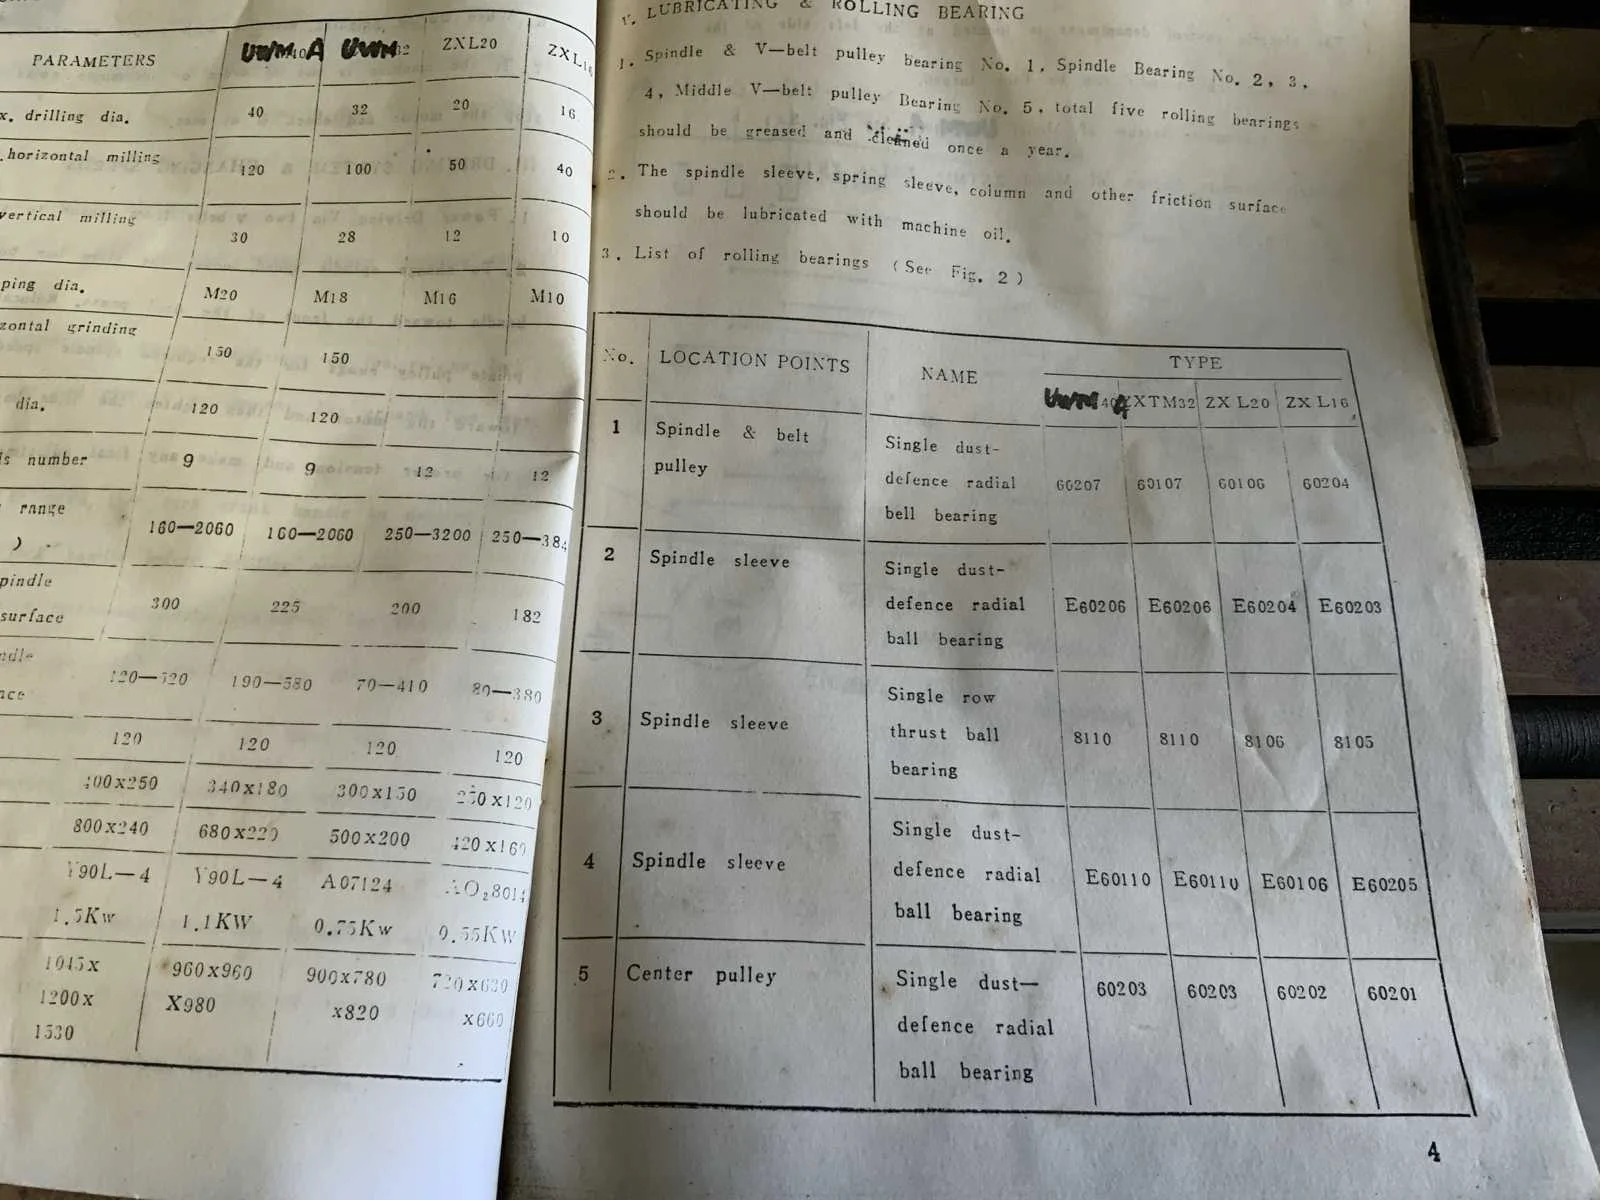 PARAMETERS UWM 40 A UWM 32 ZXL20 ZXL16
x. drilling dia. 40 32 20 16
. horizontal milling 120 100 50 40
vertical milling 30 28 12 10
ping dia. M20 M18 M16 M10
zontal grinding 150 150
dia. 120 120
s number 9 9 12 12
range
) 160—2060 160—2060 250—3200 250—384
pindle
surface 300 225 200 182
ndle
nce 120—520 190—580 70—410 80—380
120 120 120 120
400x250 340x180 300x150 250x120
800x240 680x220 500x200 420x160
Y90L—4 Y90L—4 A07124 AO₂8014
1.5Kw 1.1KW 0.75Kw 0.55KW
1045x 960x960 900x780 720x630
1200x X980 x820 x660
1530
V. LUBRICATING & ROLLING BEARING
1. Spindle & V—belt pulley bearing No. 1, Spindle Bearing No. 2, 3,
4, Middle V—belt pulley Bearing No. 5, total five rolling bearings
should be greased and cleaned once a year.
2. The spindle sleeve, spring sleeve, column and other friction surface
should be lubricated with machine oil.
3. List of rolling bearings (See Fig. 2)
No. LOCATION POINTS NAME TYPE
UWM 40 A ZXTM32 ZX L20 ZX L16
1 Spindle & belt Single dust-
pulley defence radial 60207 60107 60106 60204
bell bearing
2 Spindle sleeve Single dust-
defence radial E60206 E60206 E60204 E60203
ball bearing
3 Spindle sleeve Single row
thrust ball 8110 8110 8106 8105
bearing
4 Spindle sleeve Single dust-
defence radial E60110 E60110 E60106 E60205
ball bearing
5 Center pulley Single dust— 60203 60203 60202 60201
defence radial
ball bearing
4